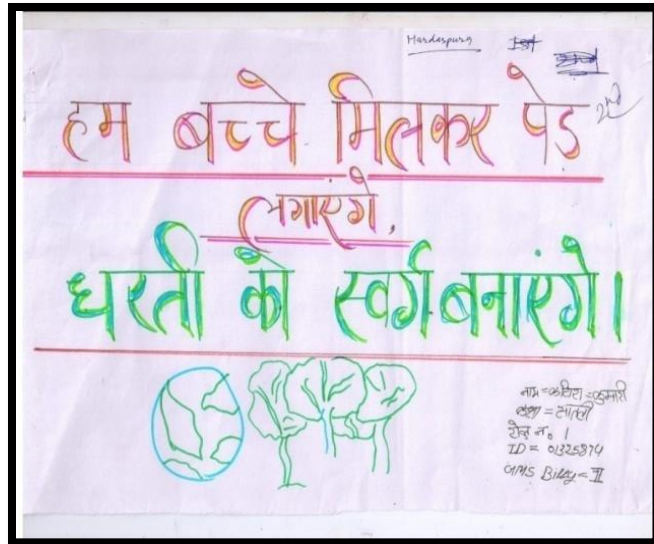 Hardaspura
2nd
हम बच्चे मिलकर पेड
लगाएंगे,
धरती को स्वर्ग बनाएंगे।
नाम = कुमारी
कक्षा = सातवी
रोल न० 1
ID = 01325874
GMS